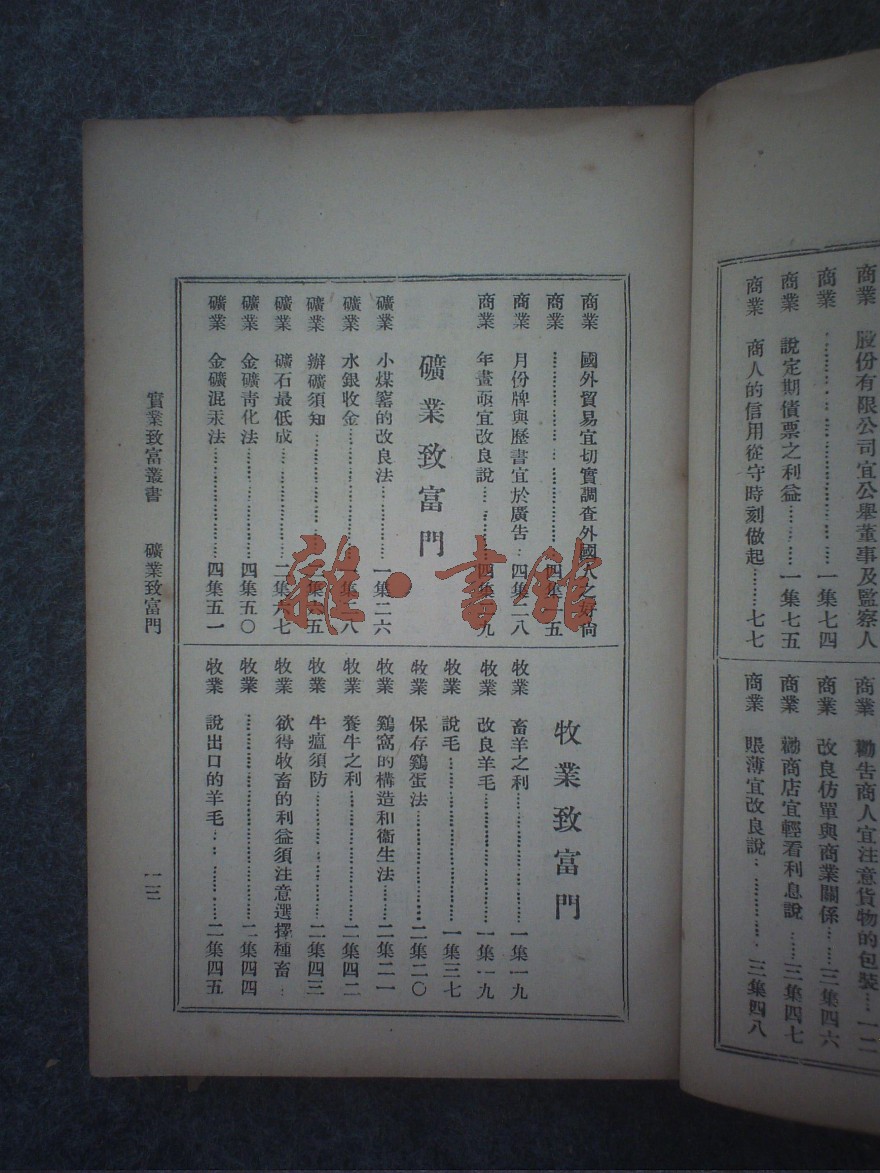 商業 股份有限公司宜公舉董事及監察人
商業 ……………………一集七四
商業 說定期債票之利益………一集七五
商業 商人的信用從守時刻做起………七七
商業 勸告商人宜注意貨物的包裝……一二
商業 改良仿單與商業關係……三集四六
商業 勸商店宜輕看利息說……三集四七
商業 賬薄宜改良說……………三集四八
商業 國外貿易宜切實調查外國人之好尚
商業 ……………………四集 五
商業 月份牌與歷書宜於廣告…四集二八
商業 年畫亟宜改良說………四集 九
礦業致富門
礦業 小煤窰的改良法…………一集二六
礦業 水銀收金……………… 八
礦業 辦礦須知……………… 五
礦業 礦石最低成……………二集六七
礦業 金礦靑化法……………四集五〇
礦業 金礦混汞法……………四集五一
牧業致富門
牧業 畜羊之利………………一集一九
牧業 改良羊毛………………一集一九
牧業 說毛……………………一集三七
牧業 保存鷄蛋法……………二集二〇
牧業 鷄窩的構造和衞生法……二集二一
牧業 養牛之利………………二集四二
牧業 牛瘟須防………………二集四三
牧業 欲得牧畜的利益須注意選擇種畜…
牧業 ……………………二集四四
牧業 說出口的羊毛…………二集四五
實業致富叢書 礦業致富門
一三
雜·書館